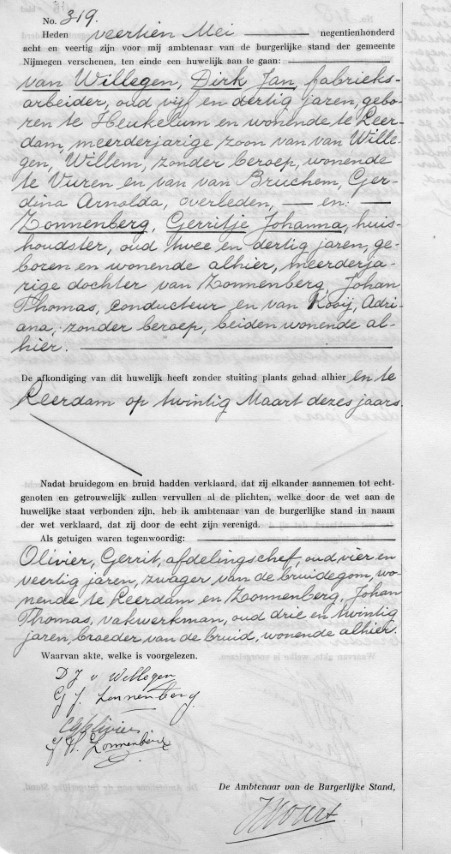 No. 319.
Heden veertien Mei negentienhonderd
acht en veertig zijn voor mij ambtenaar van de burgerlijke stand der gemeente
Nijmegen verschenen, ten einde een huwelijk aan te gaan:
van Willegen, Dirk Jan, fabrieks-
arbeider, oud vijf en dertig jaren, gebo-
ren te Heukelum en wonende te Leer-
dam, meerderjarige zoon van van Wille-
gen, Willem, zonder beroep, wonende
te Vuren en van van Bruchem, Ger-
dina Arnolda, overleden, — en: —
Zonnenberg, Gerritje Johanna, huis-
houdster, oud twee en dertig jaren, ge-
boren en wonende alhier, meerderja-
rige dochter van Zonnenberg, Johan
Thomas, conducteur en van Rooij, Adri-
ana, zonder beroep, beiden wonende al-
hier.
De afkondiging van dit huwelijk heeft zonder stuiting plaats gehad alhier en te
Leerdam op twintig Maart dezes jaars.
Nadat bruidegom en bruid hadden verklaard, dat zij elkander aannemen tot echt-
genoten en getrouwelijk zullen vervullen al de plichten, welke door de wet aan de
huwelijke staat verbonden zijn, heb ik ambtenaar van de burgerlijke stand in naam
der wet verklaard, dat zij door de echt zijn verenigd.
Als getuigen waren tegenwoordig:
Olivier, Gerrit, afdelingschef, oud vier en
veertig jaren, zwager van de bruidegom, wo-
nende te Leerdam en Zonnenberg, Johan
Thomas, vakwerkman, oud drie en twintig
jaren, broeder van de bruid, wonende alhier.
Waarvan akte, welke is voorgelezen.
D J v Willegen
G J. Zonnenberg
Olivier
Zonnenberg
De Ambtenaar van de Burgerlijke Stand,